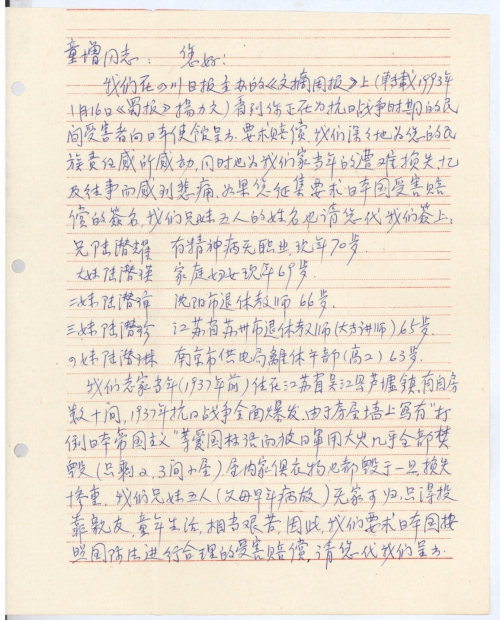 童增同志： 您好！
我们在四川日报主办的《文摘周报》上（转载1993年
1月16日《蜀报》揚力文）看到你正在为抗日战争时期的民
间受害者向日本使馆呈办，要求赔偿，我们深深地为您的民
族责任感所感动，同时也为我们家当年的遭难损失忆
及往事而感到悲痛，如果您征集要求日本国受害赔
偿的签名，我们兄妹五人的姓名也请您代我们签上：
兄陆潜耀 有精神病无职业，现年70岁。
大妹陆潜瑛 家庭妇女现年69岁。
二妹陆潜 沈阳市退休教师 66岁。
三妹陆潜珍 江苏省苏州市退休教师(大专讲师) 65岁。
四妹陆潜琳 南京市供电局離休干部(高工) 63岁。
我们老家当年（1937年前）住在江苏省吴江县芦墟镇，有自房
数十间，1937年抗日战争全面爆发，由于房屋墙上写有“打
倒日本帝国主义”等爱国标语而被日軍用大火几乎全部焚
毁（只剩2、3间小屋）屋内家俱在物也都毁于一旦损失
惨重，我们兄妹五人（父母早年病故）无家可归，只得投
靠親友，童年生活，相当艰苦，因此，我们要求日本国按
照国际法进行合理的受害赔偿，请您代我们呈办